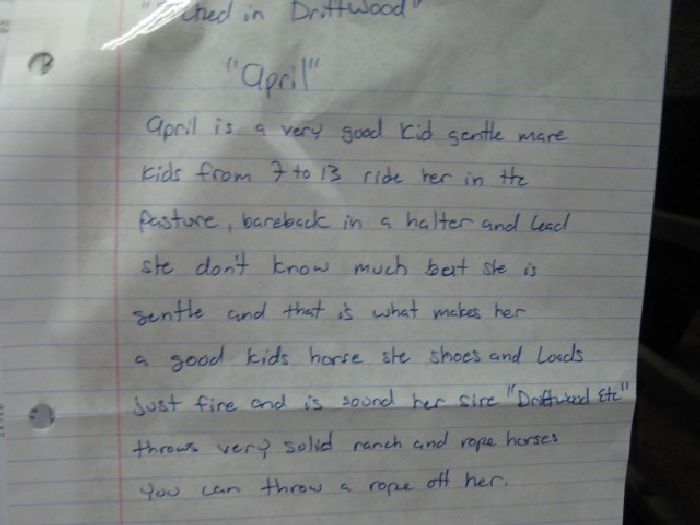 in Driftwood"
"April"
April is a very good kid gentle mare
kids from 7 to 13 ride her in the
pasture, bareback in a halter and lead
she don't know much but she is
gentle and that is what makes her
a good kids horse she shoes and loads
just fire and is sound her sire "Driftwood Etc"
throws very solid ranch and rope horses
you can throw a rope off her.